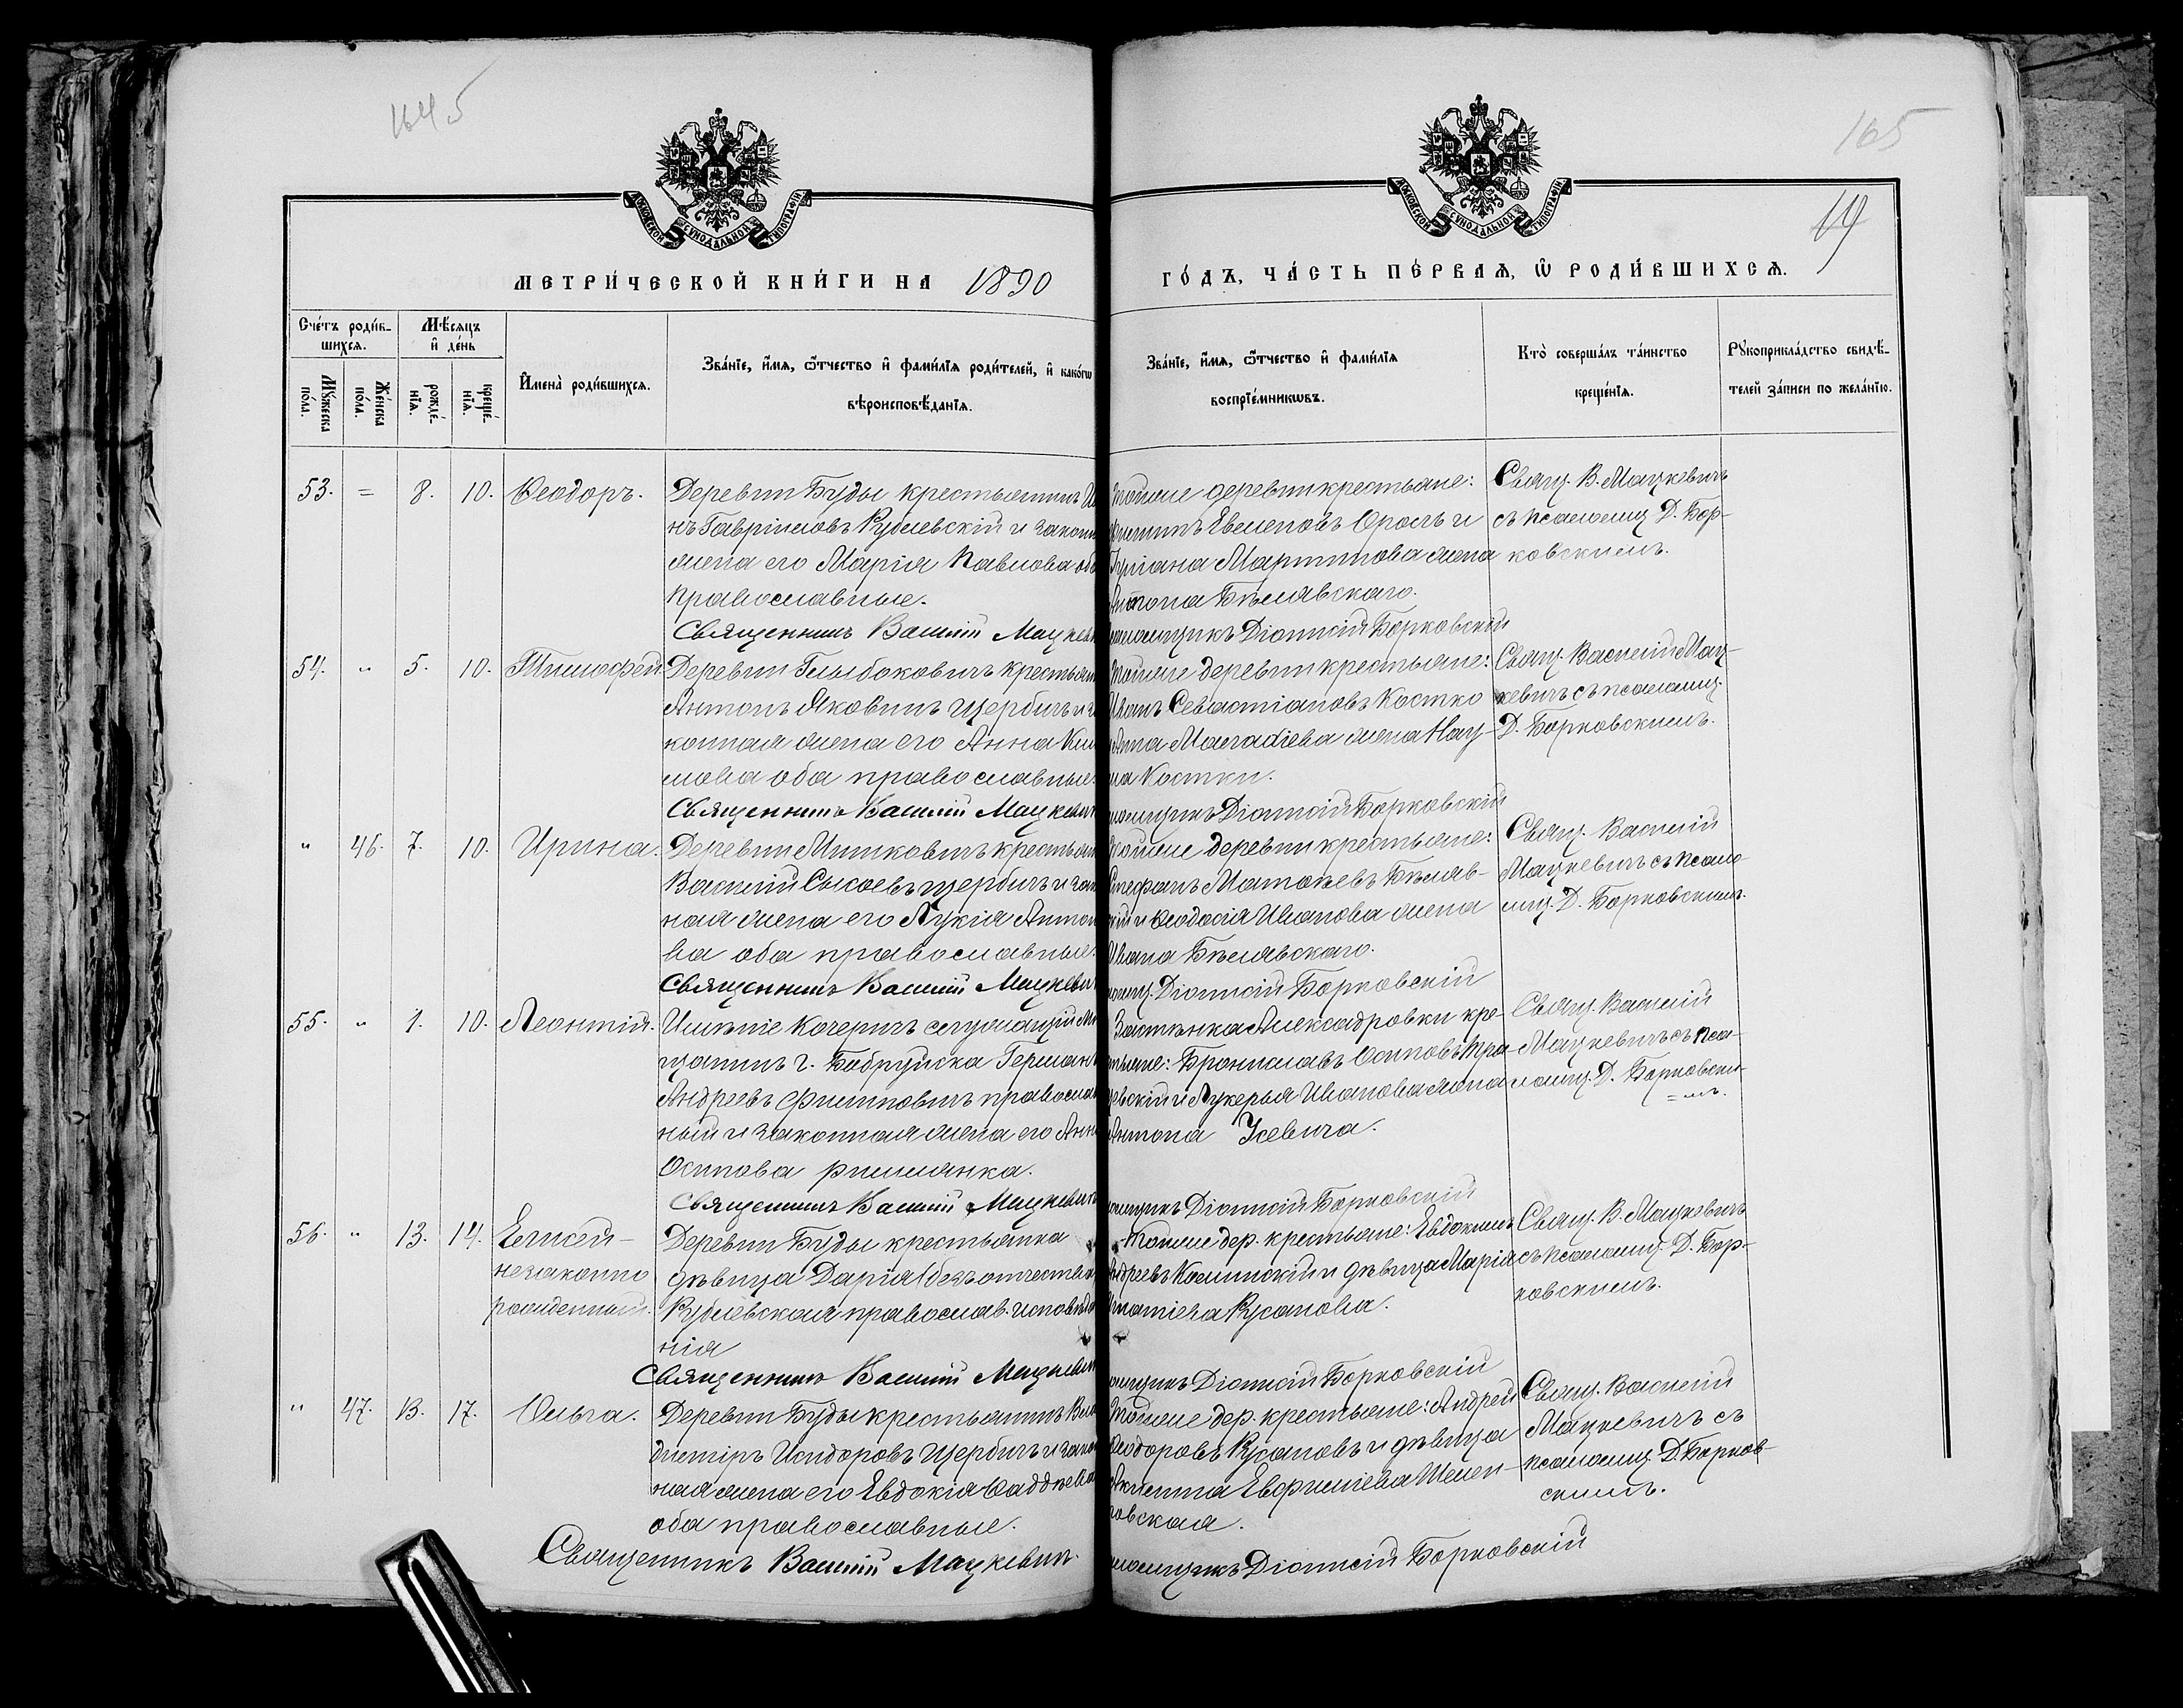 1645
165
19
МОСКОВСКОЙ СѴНОДАЛЬНОЙ ТИПОГРАФІИ
МОСКОВСКОЙ СѴНОДАЛЬНОЙ ТИПОГРАФІИ
МЕТРИ́ЧЕСКОЙ КНИ́ГИ НА 1890
ГО́ДЪ, ЧА́СТЬ ПЕ́РВАѦ, Ѡ҆ РОДИ́ВШИХСѦ.
Сче́тъ роди́в-
шихсѧ.
Мѣ́сѧцъ
и҆ де́нь
Мꙋ́жеска
по́ла.
Же́нска
по́ла.
рожде́-
нїѧ.
креще́-
нїѧ.
И҆мена̀ роди́вшихсѧ.
Зва́нїе, и҆́мѧ, ѻ҆́тчество и҆ фами́лїѧ роди́телей, и҆ како́гѡ
вѣроисповѣ́данїѧ.
Зва́нїе, и҆́мѧ, ѻ҆́тчество и҆ фами́лїѧ
воспрїе́мникѡвъ.
Кто̀ соверша́лъ та́инство
креще́нїѧ.
Рꙋкоприкла́дство свидѣ́-
телей за́писи по жела́нїю.
53. = 8. 10. Ѳеодоръ.
Деревни Буды крестьянинъ
нъ Гавріиловъ Рублевскій и закон
жена его Марія Павлова оба
православные.
Священникъ Василій Мацкевич
тойже деревни крестьяне:
Орелъ и
Мартинова жена
Антона Бѣлявскаго.
псаломщикъ Діонисій Борковскій
Свящ. В. Мацкевичъ
съ псаломщ. Д. Бор-
ковскимъ.
54. " 5. 10. Тимофей.
Деревни Глыбоковичъ крестьян
Антонъ Яковинъ Щербичъ и за
конная жена его Анна Кли
мова оба православные.
Священникъ Василій Мацкевич
тойже деревни крестьяне:
Иванъ Севастіановъ Костко
и Анна жена Нау-
ма Костки.
псаломщикъ Діонисій Борковскій
Свящ. Василій Мац-
кевичъ съ псаломщ.
Д. Борковскимъ.
" 46. 7. 10. Ирина.
Деревни Мишковичъ крестьян
Василій Сысоевъ Щербичъ и зак
ная жена его Лукія Антоно
ва оба православные.
Священникъ Василій Мацкевич
тойже деревни крестьяне:
Стефанъ Матвѣевъ Бѣляв-
скій и Ѳеодосія Иванова жена
Ивана Бѣлявскаго.
псаломщ. Діонисій Борковскій
Свящ. Василій
Мацкевичъ съ псало
мщ. Д. Борковскимъ.
55. " 1. 10. Леонтій.
Имѣніе Кочеричъ служащій Мѣ
щанинъ г. Бобруйска Германъ
Андреевъ Филиповичъ православ
ный и законная жена его Анна
Осипова римлянка.
Священникъ Василій Мацкевичъ
Застѣнка Александровки кре-
стьяне: Брониславъ Осиповъ
и Лукерья Иванова жена
Антона Усевича.
псаломщикъ Діонисій Борковскій
Свящ. Василій
Мацкевичъ съ пса-
ломщ. Д. Борковски-
=мъ.
56. " 13. 14. Елисей -
незаконно
рожденный.
Деревни Буды крестьянка
дѣвица Дарія (безъ отчества)
Рублевская православ. исповѣда
нія
Священникъ Василій Мацкевич
тойже дер. крестьяне: Евдокимъ
Андреевъ и дѣвица Марія
Игнатіева Русанова.
псаломщикъ Діонисій Борковскій
Свящ. В. Мацкевичъ
съ псаломщ. Д. Бор-
ковскимъ.
" 47. 13. 17. Ольга.
Деревни Буды крестьянинъ Вла
диміръ Исидоровъ Щербичъ и закон
ная жена его Евдокія Ѳаддѣева
оба православные.
Священникъ Василій Мацкевич.
тойже дер. крестьяне: Андрей
Ѳеодоровъ Русановъ и дѣвица
Акилина Евфиміева
псаломщикъ Діонисій Борковскій
Свящ. Василій
Мацкевичъ съ
псаломщ. Д. Борков-
скимъ.